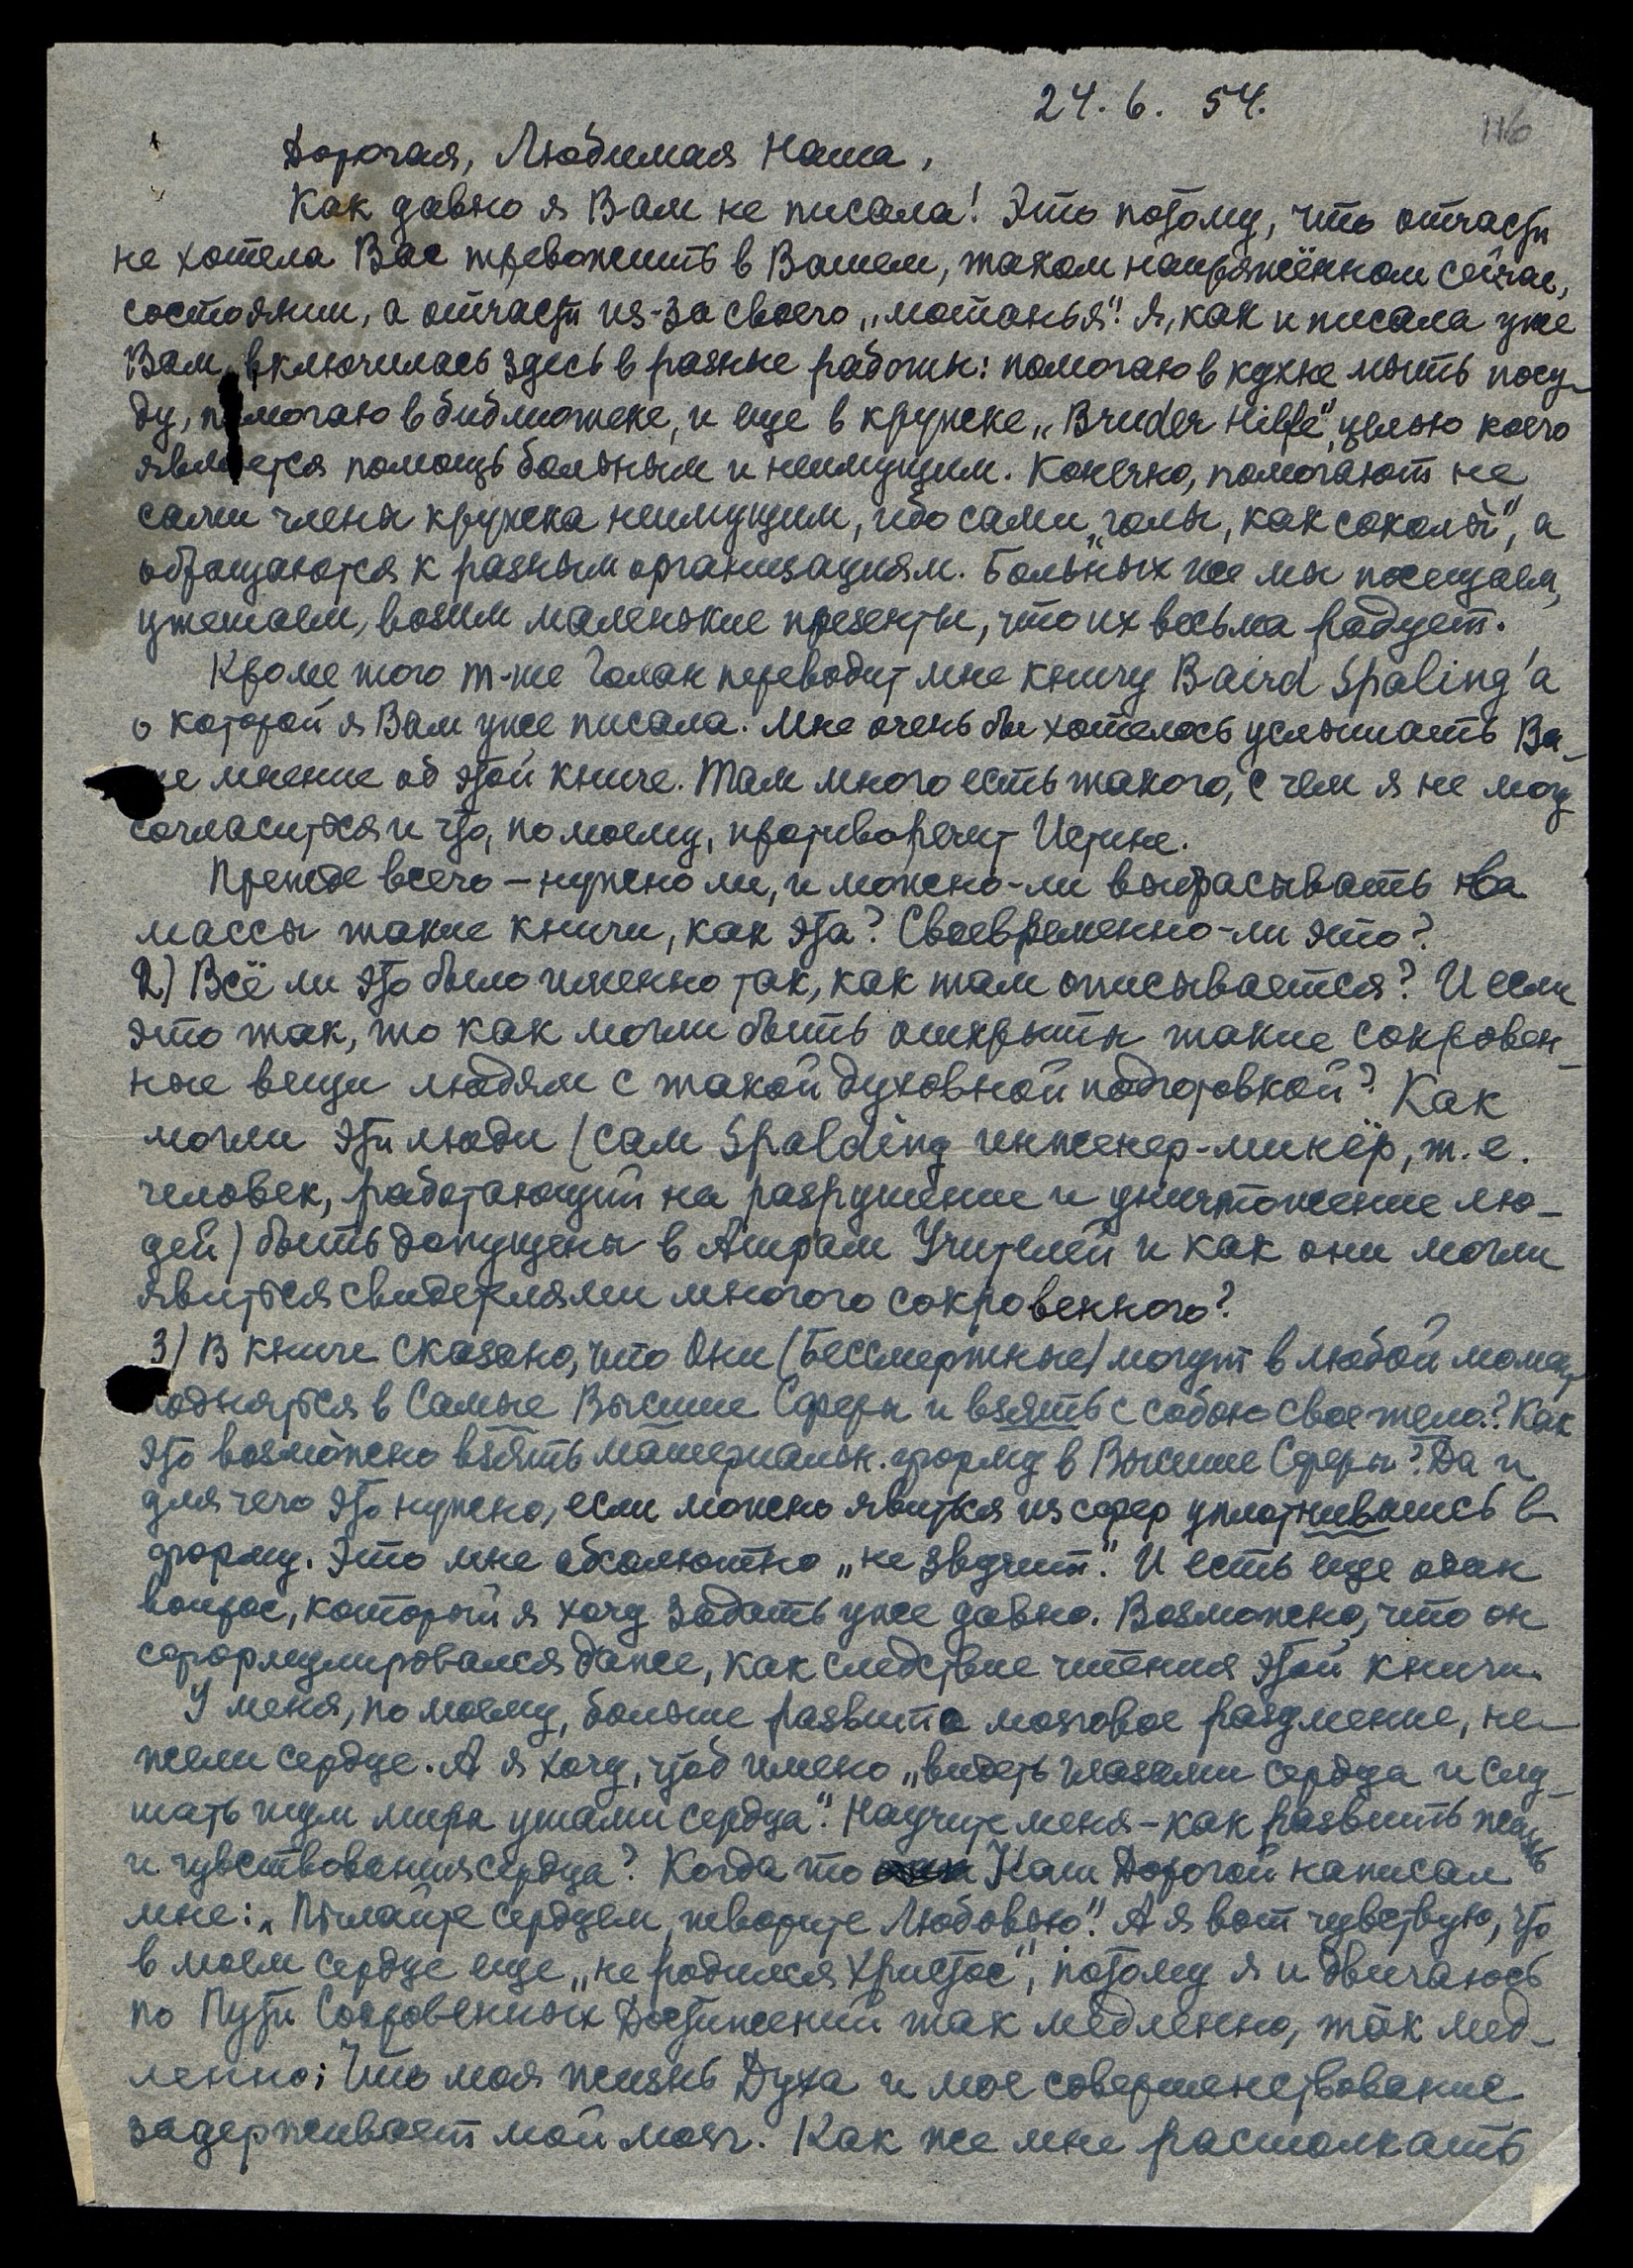 24. 6. 54.
116
Дорогая, Любимая Наша,
Как давно я Вам не писала! Это потому, что отчасти
не хотела Вас тревожить в Вашем, таком напряжённом сейчас,
состоянии, а отчасти из-за своего „мотанья". Я, как и писала уже
Вам, включилась здесь в разные работы: помогаю в кухне мыть посу-
ду, помогаю в библиотеке, и еще в кружке „Bruder Hilfe", целью коего
является помощь больным и неимущим. Конечно, помогают не
сами члены кружка неимущим, ибо сами „голы, как соколы", а
обращаются к разным организациям. Больных же мы посещаем,
утешаем, возим маленькие презенты, что их весьма радует.
Кроме того m-me Голан переводит мне книгу Baird Spaling'а
о которой я Вам уже писала. Мне очень бы хотелось услышать Ва-
ше мнение об этой книге. Там много есть такого, с чем я не могу
согласиться и что, по моему, противоречит Истине.
Прежде всего — нужно ли, и можно-ли выбрасывать на
массы такие книги, как эта? Своевременно-ли это?
2) Всё ли это было именно так, как там описывается? И если
это так, то как могли быть открыты такие сокровен-
ные вещи людям с такой духовной подготовкой? Как
могли эти люди (сам Spalding инженер-минёр, т. е.
человек, работающий на разрушение и уничтожение лю-
дей) быть допущены в Ашрам Учителей и как они могли
явиться свидетелями многого сокровенного?
3) В книге сказано, что Они (Бессмертные) могут в любой момент
подняться в Самые Высшие Сферы и взять с собою свое тело? Как
это возможно взять материальн. форму в Высшие Сферы? Да и
для чего это нужно, если можно явиться из сфер уплотнившись в
форму. Это мне абсолютно „не звучит". И есть еще один
вопрос, который я хочу задать уже давно. Возможно, что он
сформулировался даже, как следствие чтения этой книги.
У меня, по моему, больше развито мозговое разумение, не-
жели сердце. А я хочу, чтоб имено „видеть глазами сердца и слу-
шать шум мира ушами сердца". Научите меня - как развить жизнь
и чувствования сердца? Когда то Наш Дорогой написал
мне: „Пылайте сердцем, творите Любовью". А я вот чувствую, что
в моем сердце еще „не родился Христос", потому я и двигаюсь
по Пути Сокровенных Достижений так медленно, так мед-
ленно; Что моя жизнь Духа и мое совершенствование
задерживает мой мозг. Как же мне растолкать